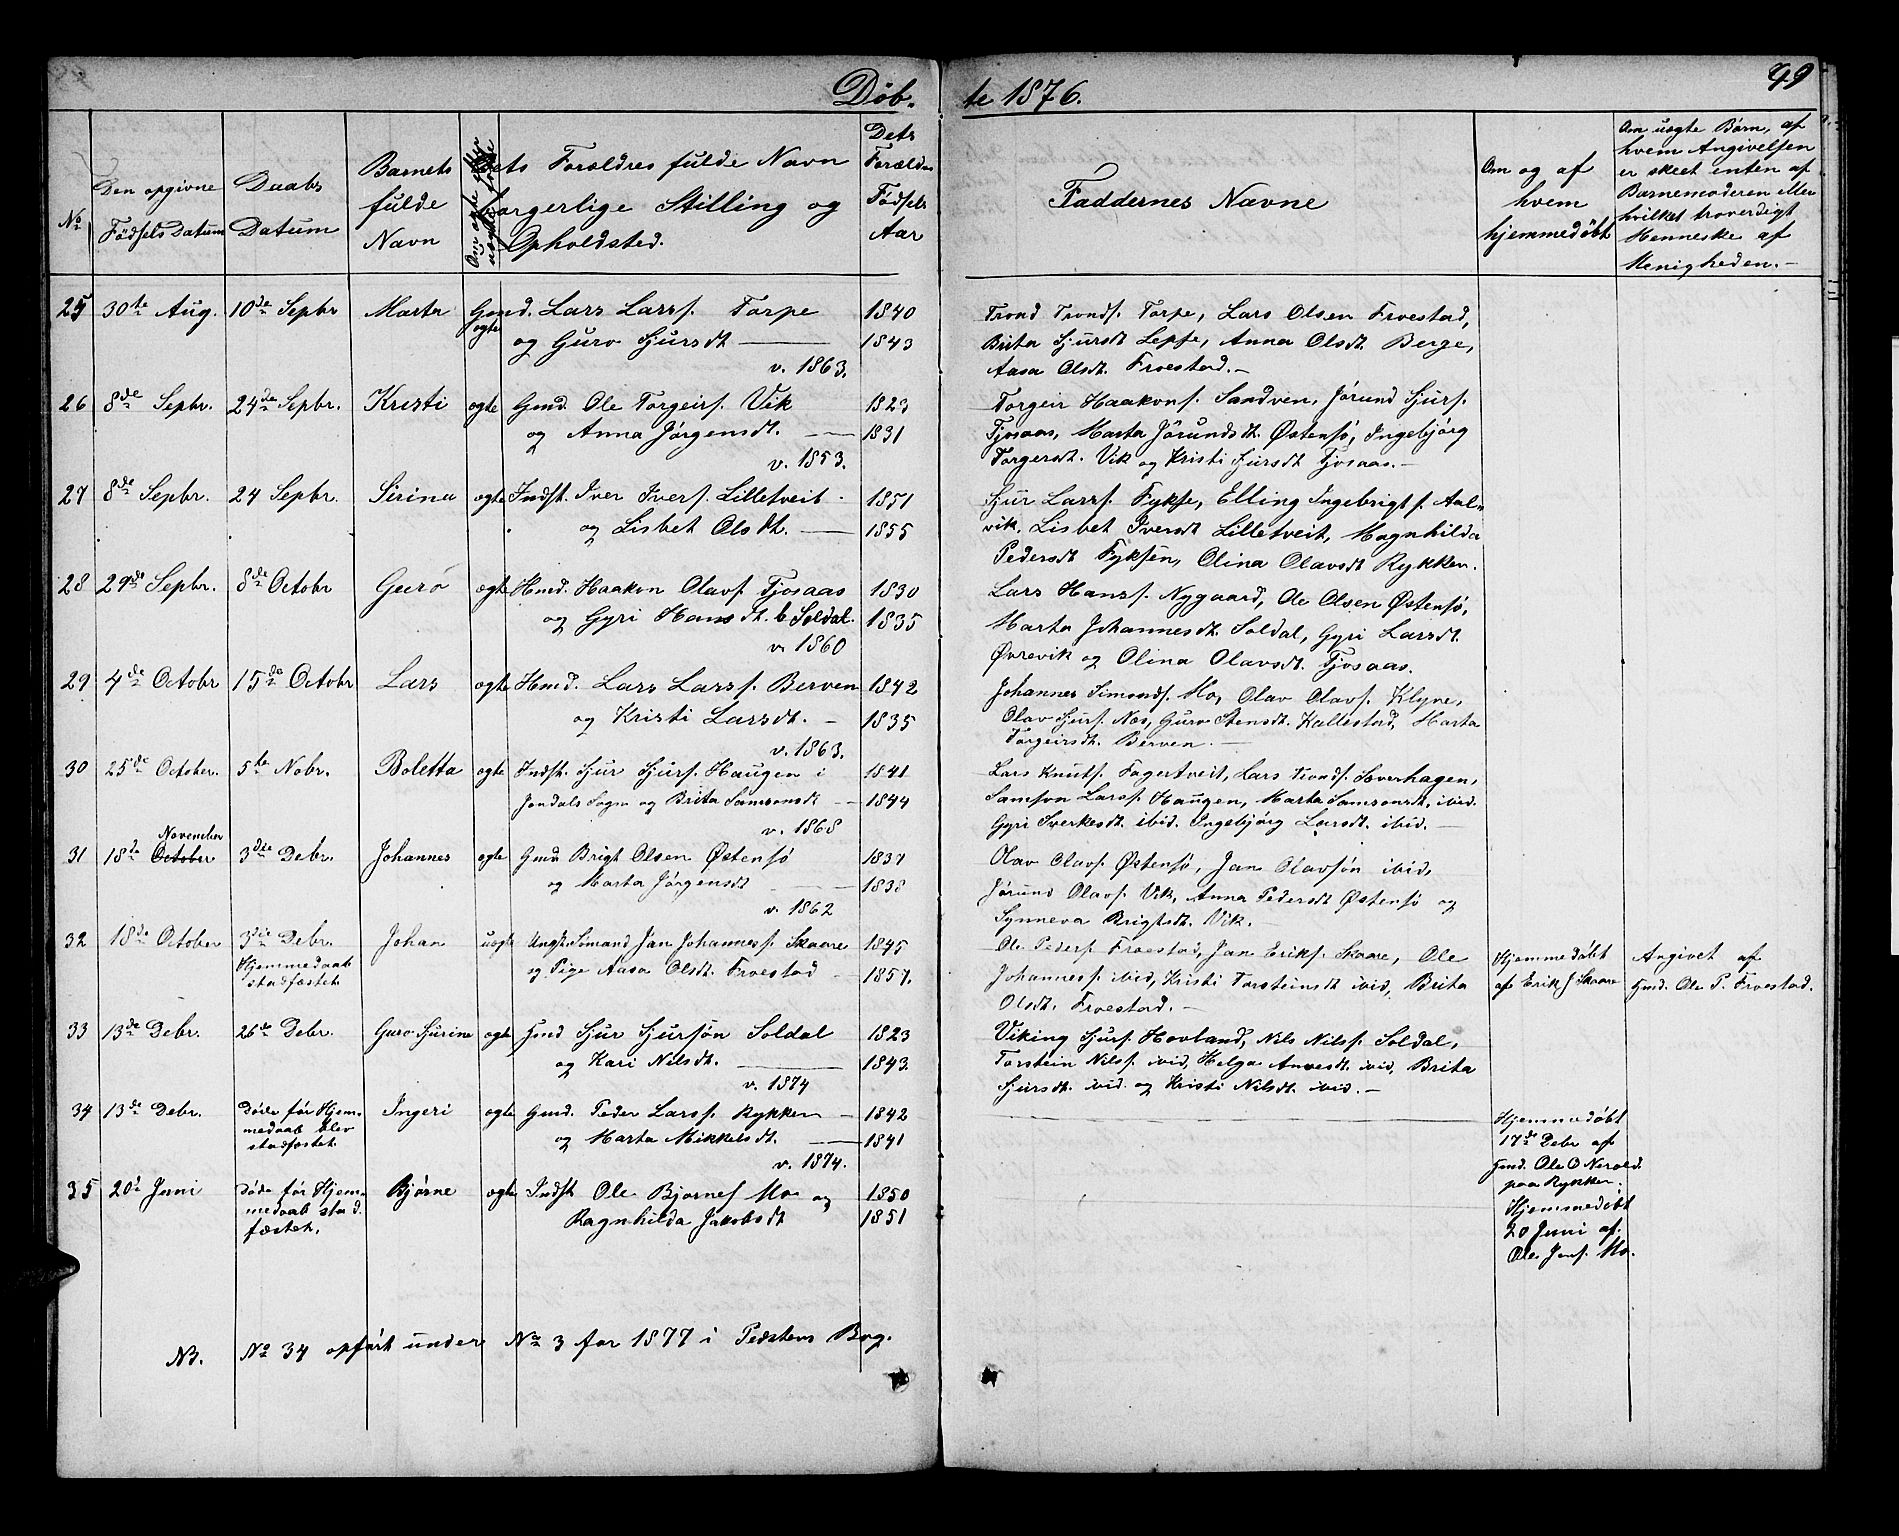 Döb-
te 1876.
99
No
Den opgivne Fødsels Datum
Daabs Datum
Barnets fulde Navn
Om ægte eller uægte
Dets Forældres fulde Navn borgerlige Stilling og Opholdsted.
Dets Forældres Fødsels Aar
Faddernes Navne
Om og af hvem hjemmedøbt
Om uægte Børn, af hvem Angivelsen er skeet enten af Barnemoderen eller hvilket troverdigt Menneske af Menigheden.
25 30te Aug. 10de Sepbr Marta ægte Gmd. Lars Larsf. Torpe 1840
og Guro Sjursdt — 1843
v. 1863.
Trond Trondf. Torpe, Lars Olsen Froestad,
Brita Sjursdt Lepse, Anna Olsdt. Berge,
Aasa Olsdt. Froestad.
26 8de Sepbr. 24de Sepbr. Kristi ægte Gmd. Ole Torgeirs. Vik 1823
og Anna Jørgensdt. — 1831
v. 1853.
Torgeir Haakonf. Sandven, Jørund Sjurf.
Tjosaas, Marta Jörundsdt. Østensö, Ingebjørg
Torgersdt. Vik og Kristi Sjursdt Tjosaas.
27 8de Sepbr. 24 Sepbr. Sirina ægte Indst. Iver Iverf. Lilletveit 1851
og Lisbet Olsdt. — 1855
Sjur Larsf. Fykse, Elling Ingebrigtf. Aal-
vik, Lisbet Iversdt Lilletveit, Magnhilda
Pedersdt Fyksen, Olina Olavsdt Rykken.
28 29de Sepbr. 8de Octobr Gurø ægte Hmd. Haakon Olavf. Tjosaas 1830
og Gyri Hansdt. b Soldal. 1835
v. 1860
Lars Hansf. Nygaard, Ole Olsen Østensö,
Marta Johannesdt. Soldal, Gyri Larsdt.
Øvrevik og Olina Olavsdt. Tjosaas.
29 4de Octobr 15de Octobr Lars ægte Hmd. Lars Larsf. Berven 1842
og Kristi Larsdt. — 1835
v. 1863.
Johannes Simondf. Mo, Olav Olavf. Klyve,
Olav Sjurf. Næs, Guro Stensdt. Kallestad, Marta
Torgeirsdt. Berven.
30 25de October. 5te Nobr. Boletta ægte Indst. Sjur Sjurf. Haugen i 1841
Jondals Sogn og Brita Samsonsdt — 1844
v. 1868
Lars Knutf. Fagertveit, Lars Trondf. Soverhagen,
Samson Larsf. Haugen, Marta Samsonsdt, ibid.
Gyri Sverkesdt. ibid. Ingebjørg Larsdt. ibid.
November
31 18de October 3die Debr. Johannes ægte Gmd. Brigt Olsen Østensø 1837
og Marta Jørgensdt — 1838
v. 1862
Olav Olavf. Østensø, Jan Olavsøn ibid,
Jørund Olavf. Vik, Anna Pedersdt Østensø og
Synneva Brigtsdt. Vik.
32 18de October 3die Debr. Johan uægte Ungk. Sömand Jan Johannesf. Skaare 1845
Hjemmedaab stadfæstet. og Pige Aasa Olsdt. Froestad — 1857.
Ole Pederf. Froestad, Jan Erikf. Skaare, Ole
Johannesf. ibid, Kristi Torsteinsdt ibid, Brita
Olsdt. Froestad.
Hjemmedøbt af Erik J Skaare
Angivet af Gmd. Ole P. Froestad.
33 13de Debr. 26de Debr. Guro Sjurine ægte Gmd Sjur Sjursøn Soldal 1823
og Kari Nilsdt. — 1843.
v. 1874
Viking Sjurf. Hovland, Nils Nilsf. Soldal,
Torstein Nilsf. ibid, Helga Anvesdt ibid, Brita
Sjursdt. ibid. og Kristi Nilsdt. ibid.
34 13de Debr. Döde før Hjem- Ingeri ægte Gmd. Peder Larsf. Rykken — 1842
medaab blev stadfæstet. og Marta Mikkelsdt. — 1841
v. 1874.
Hjemmedøbt
17de Debr af
Gmd. Ole O Nerold.
paa Rykken.
35 20d Juni Döde før Hjem- Bjørne ægte Indst Ole Bjørnef Mo og 1850
medaab stad- fæstet. Ragnhilda Jakobsdt 1851
Hjemmedöbt
20 Juni af.
Ole Jonf. Mo.
NB. No 34 opført under No 3 for 1877 i Prestens Bog.